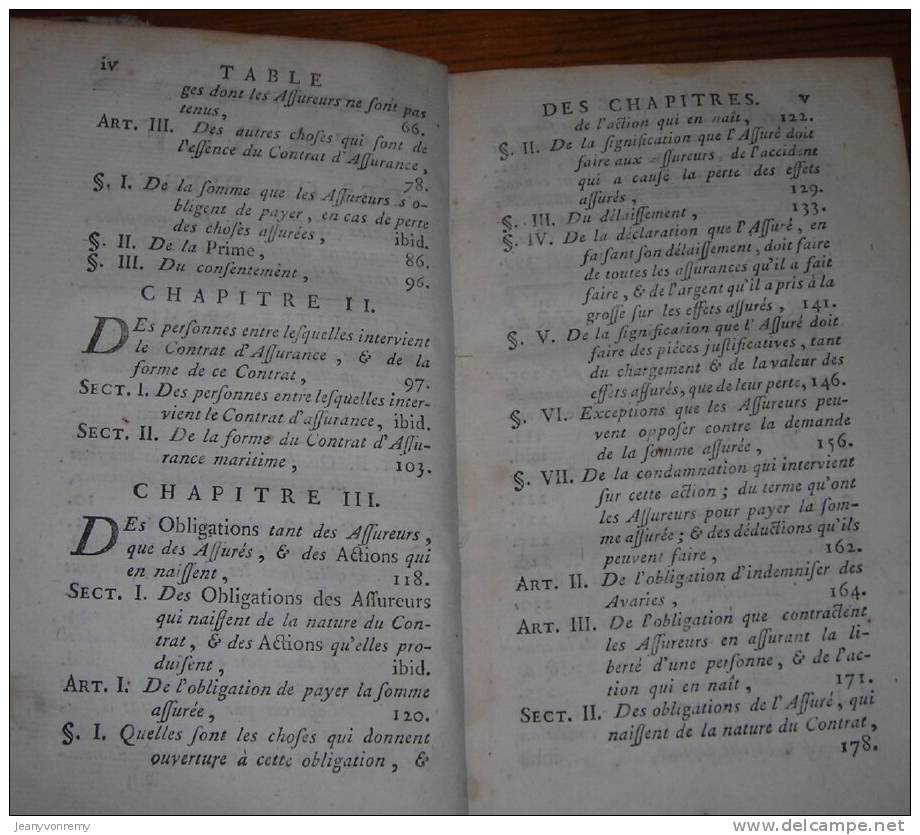 iv TABLE
ges dont les Aſſureurs ne ſont pas
tenus, 66.
ART. III. Des autres choſes qui ſont de
l'eſſence du Contrat d'Aſſurance,
78.
§. I. De la ſomme que les Aſſureurs s'o-
bligent de payer, en cas de perte
des choſes aſſurées, ibid.
§. II. De la Prime, 86.
§. III. Du conſentement, 96.
CHAPITRE II.
DEs perſonnes entre leſquelles intervient
le Contrat d'Aſſurance, & de la
forme de ce Contrat, 97.
SECT. I. Des perſonnes entre leſquelles inter-
vient le Contrat d'aſſurance, ibid.
SECT. II. De la forme du Contrat d'Aſſu-
rance maritime, 103.
CHAPITRE III.
DEs Obligations tant des Aſſureurs,
que des Aſſurés, & des Actions qui
en naiſſent, 118.
SECT. I. Des Obligations des Aſſureurs
qui naiſſent de la nature du Con-
trat, & des Actions qu'elles pro-
duiſent, ibid.
ART. I. De l'obligation de payer la ſomme
aſſurée, 120.
§. I. Quelles ſont les choſes qui donnent
ouverture à cette obligation, &
DES CHAPITRES. v
de l'action qui en naît, 122.
§. II. De la ſignification que l'Aſſuré doit
faire aux Aſſureurs, de l'accident
qui a cauſé la perte des effets
aſſurés, 129.
§. III. Du délaiſſement, 133.
§. IV. De la déclaration que l'Aſſuré, en
faiſant ſon délaiſſement, doit faire
de toutes les aſſurances qu'il a fait
faire, & de l'argent qu'il a pris à la
groſſe ſur les effets aſſurés, 141.
§. V. De la ſignification que l'Aſſuré doit
faire des piéces juſtificatives, tant
du chargement & de la valeur des
effets aſſurés, que de leur perte, 146.
§. VI. Exceptions que les Aſſureurs peu-
vent oppoſer contre la demande
de la ſomme aſſurée, 156.
§. VII. De la condamnation qui intervient
ſur cette action; du terme qu'ont
les Aſſureurs pour payer la ſom-
me aſſurée; & des déductions qu'ils
peuvent faire, 162.
ART. II. De l'obligation d'indemniſer des
Avaries, 164.
ART. III. De l'obligation que contractent
les Aſſureurs en aſſurant la li-
berté d'une perſonne, & de l'ac-
tion qui en naît, 171.
SECT. II. Des obligations de l'Aſſuré, qui
naiſſent de la nature du Contrat,
178.
jeanyvonremy
delcampe.net